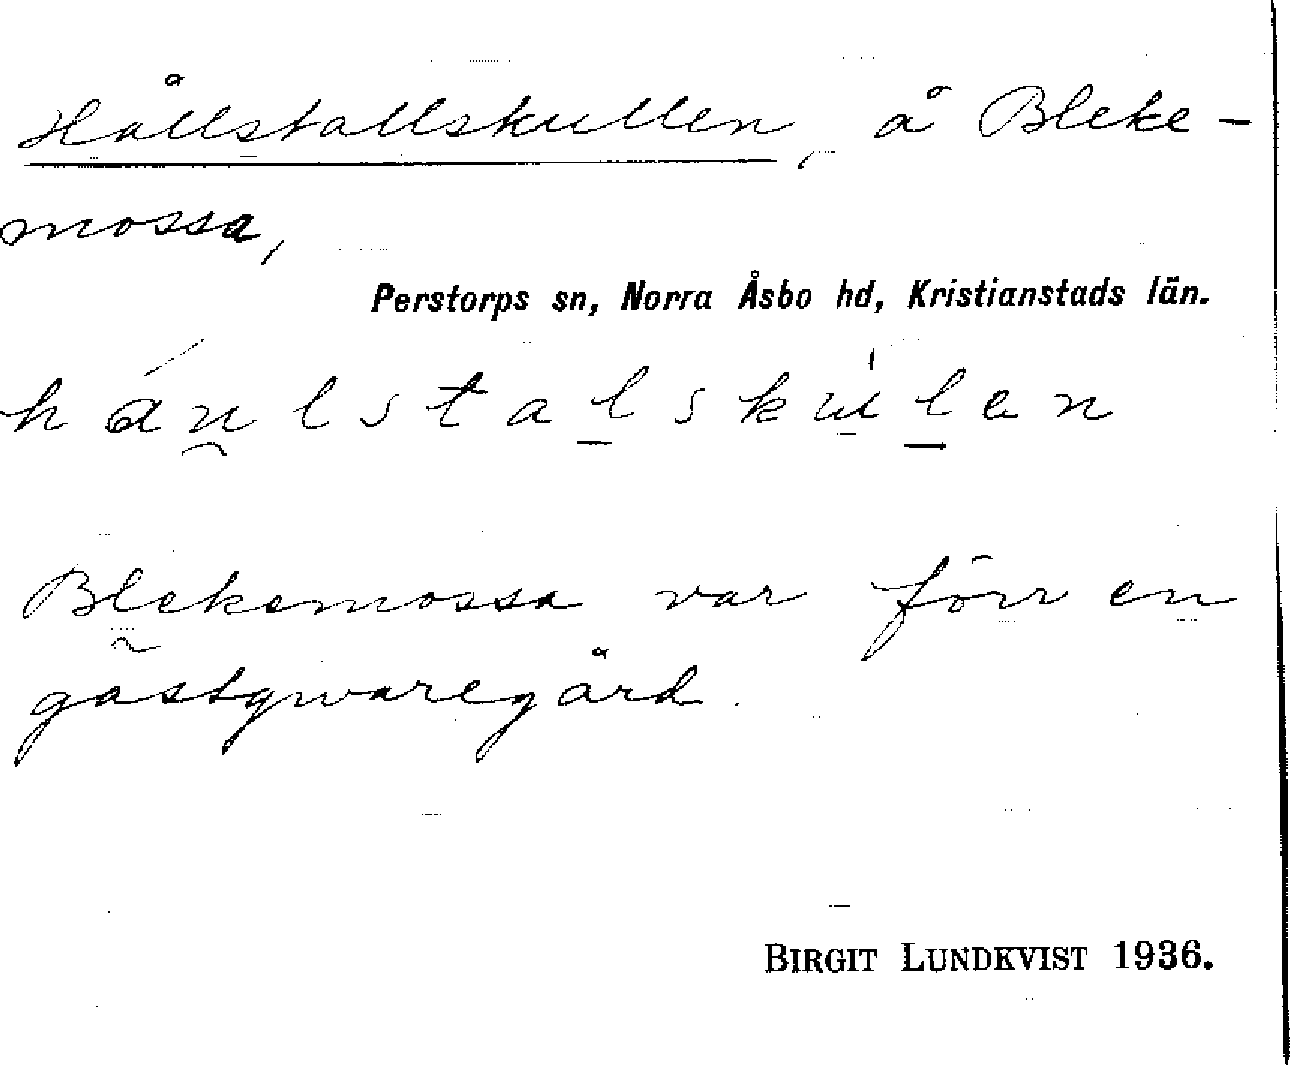 Hållstallskullen, å Bleke-
mossa,
Perstorps sn, Norra Åsbo hd, Kristianstads län.
háu̯lstal̲skúl̲en
Blekemossa var förr en
gästgivaregård.
BIRGIT LUNDKVIST 1936.